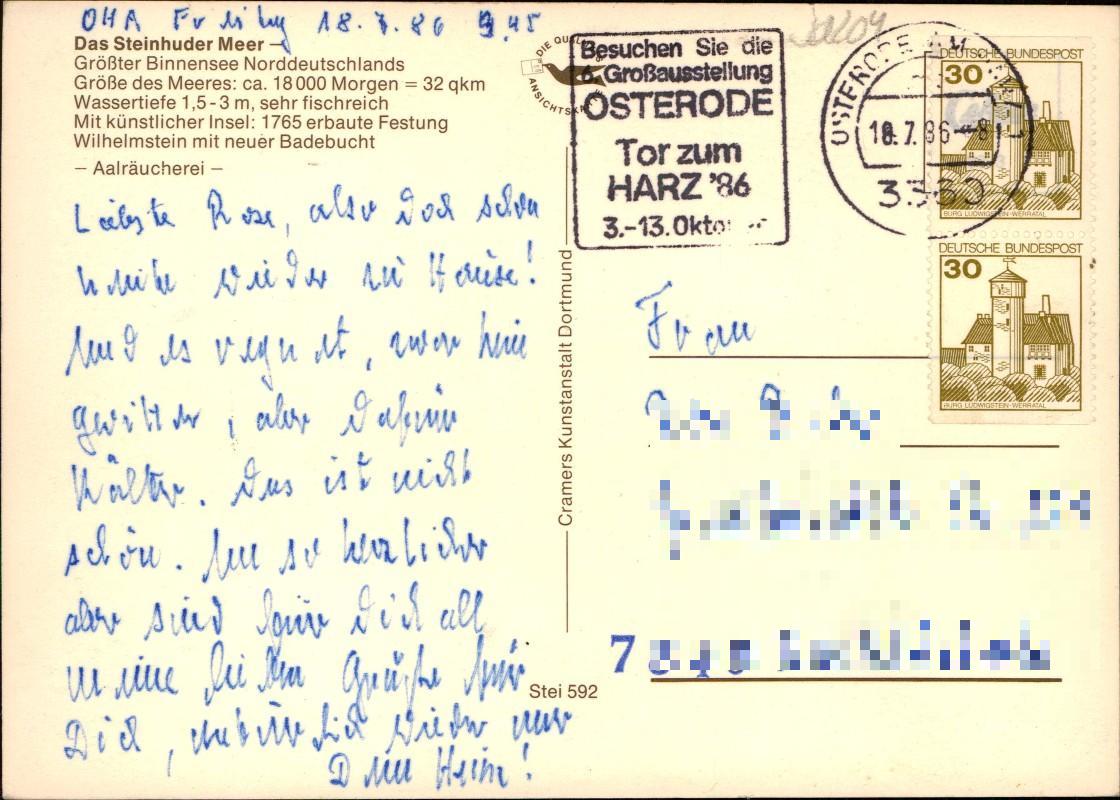 OHA Freitag 18.7.86 9.45
Das Steinhuder Meer –
Größter Binnensee Norddeutschlands
Größe des Meeres: ca. 18 000 Morgen = 32 qkm
Wassertiefe 1,5 - 3 m, sehr fischreich
Mit künstlicher Insel: 1765 erbaute Festung
Wilhelmstein mit neuer Badebucht
– Aalräucherei –
Liebste Rose, also doch schon
heute wieder zu Hause!
Und es regnet, zwar kein
Gewitter, aber dafür
Kälter. Das ist nicht
schön. Um so herzlicher
aber sind für Dich all
meine lieben Grüße für
Dich, natürlich wieder nur
Dein Heinz!
Cramers Kunstanstalt Dortmund
Stei 592
DIE QUALITÄTS
ANSICHTSKARTE
Besuchen Sie die
6. Großausstellung
OSTERODE
Tor zum
HARZ '86
3.-13. Oktober
OSTERODE AM HARZ
18.7.86-8
3360
DEUTSCHE BUNDESPOST
30
BURG LUDWIGSTEIN-WERRATAL
DEUTSCHE BUNDESPOST
30
BURG LUDWIGSTEIN-WERRATAL
Frau
7